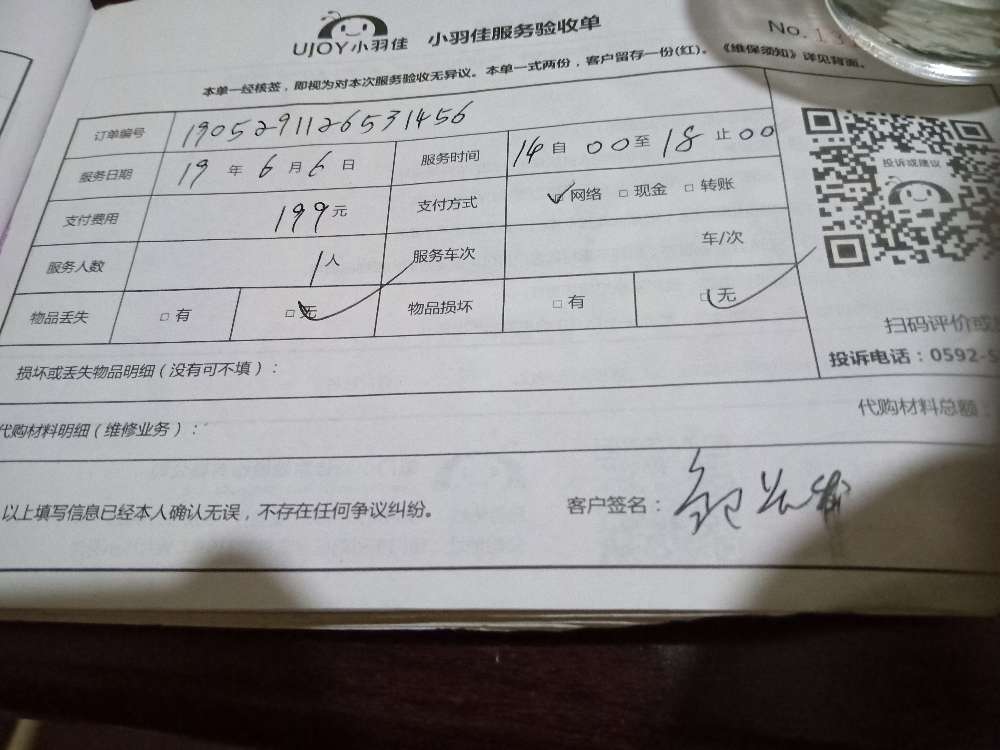 UJOY小羽佳 小羽佳服务验收单 No.
本单一经核签，即视为对本次服务验收无异议。本单一式两份，客户留存一份(红)。《维保须知》详见背面。
订单编号 1905291126531456
服务日期 19 年 6 月 6 日 服务时间 14 自 00 至 18 止 00
投诉或建议
支付费用 199 元 支付方式 ☑ 网络 □ 现金 □ 转账
服务人数 1人 服务车次 车/次
物品丢失 □ 有 ☑ 无 物品损坏 □ 有 ☑ 无
扫码评价或
投诉电话：0592-5
损坏或丢失物品明细（没有可不填）：
代购材料总额：
代购材料明细（维修业务）：
以上填写信息已经本人确认无误，不存在任何争议纠纷。 客户签名：